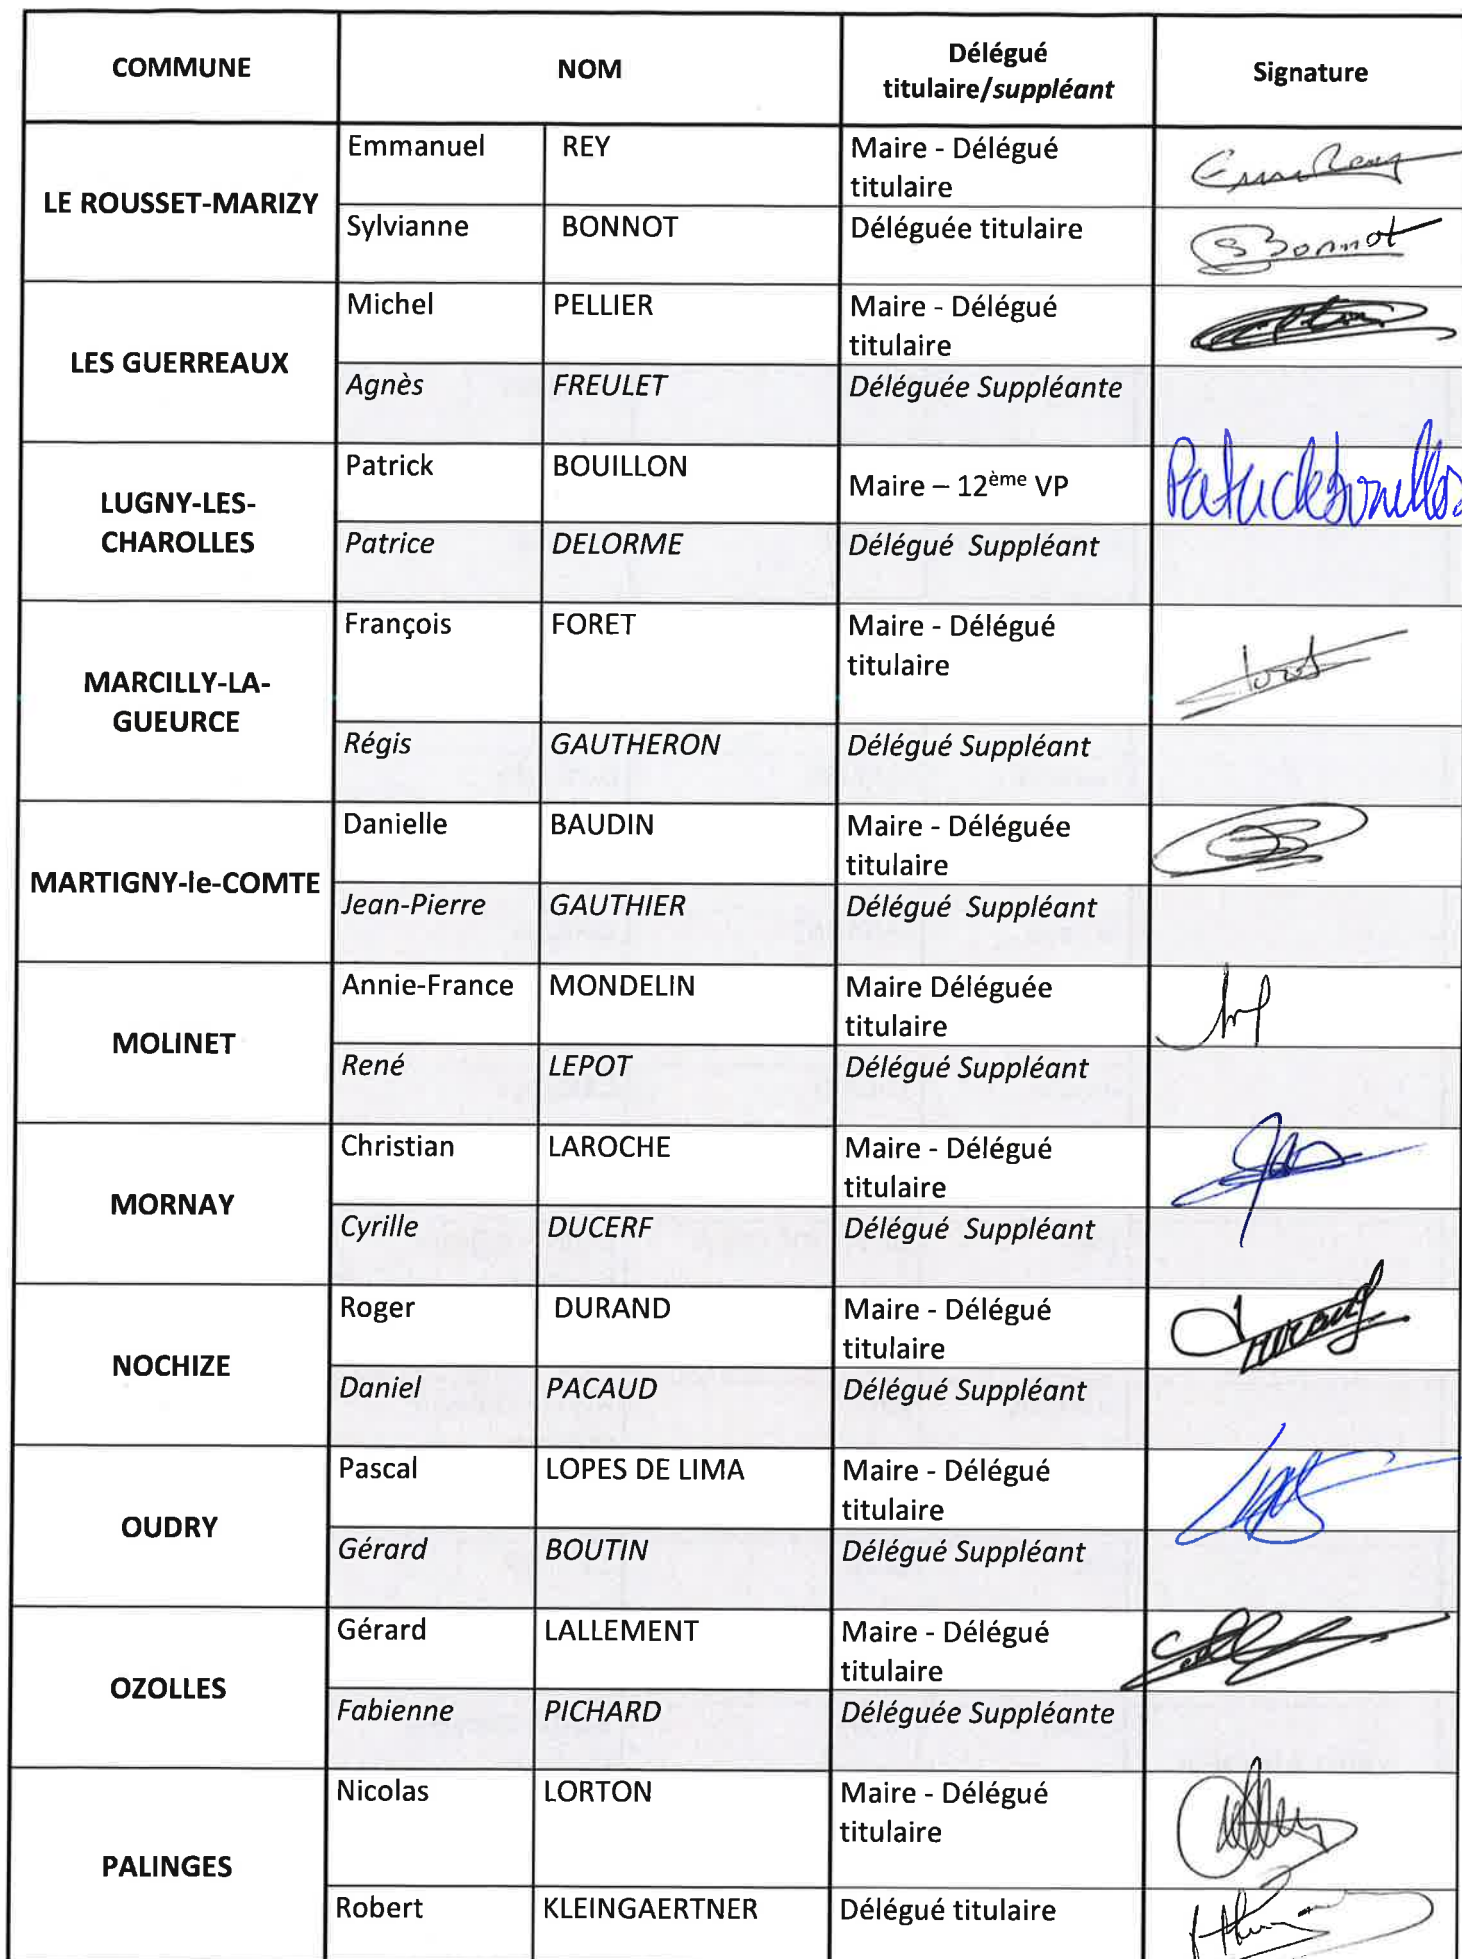 COMMUNE
NOM
Délégué
titulaire/suppléant
Signature
LE ROUSSET-MARIZY
Emmanuel REY
Maire - Délégué
titulaire
Sylvianne BONNOT
Déléguée titulaire
SBonnot
LES GUERREAUX
Michel PELLIER
Maire - Délégué
titulaire
Agnès FREULET
Déléguée Suppléante
LUGNY-LES-
CHAROLLES
Patrick BOUILLON
Maire – 12ème VP
Patrick Bouillon
Patrice DELORME
Délégué Suppléant
MARCILLY-LA-
GUEURCE
François FORET
Maire - Délégué
titulaire
Régis GAUTHERON
Délégué Suppléant
MARTIGNY-le-COMTE
Danielle BAUDIN
Maire - Déléguée
titulaire
Jean-Pierre GAUTHIER
Délégué Suppléant
MOLINET
Annie-France MONDELIN
Maire Déléguée
titulaire
René LEPOT
Délégué Suppléant
MORNAY
Christian LAROCHE
Maire - Délégué
titulaire
Cyrille DUCERF
Délégué Suppléant
NOCHIZE
Roger DURAND
Maire - Délégué
titulaire
Durand
Daniel PACAUD
Délégué Suppléant
OUDRY
Pascal LOPES DE LIMA
Maire - Délégué
titulaire
Gérard BOUTIN
Délégué Suppléant
OZOLLES
Gérard LALLEMENT
Maire - Délégué
titulaire
Fabienne PICHARD
Déléguée Suppléante
PALINGES
Nicolas LORTON
Maire - Délégué
titulaire
Robert KLEINGAERTNER
Délégué titulaire